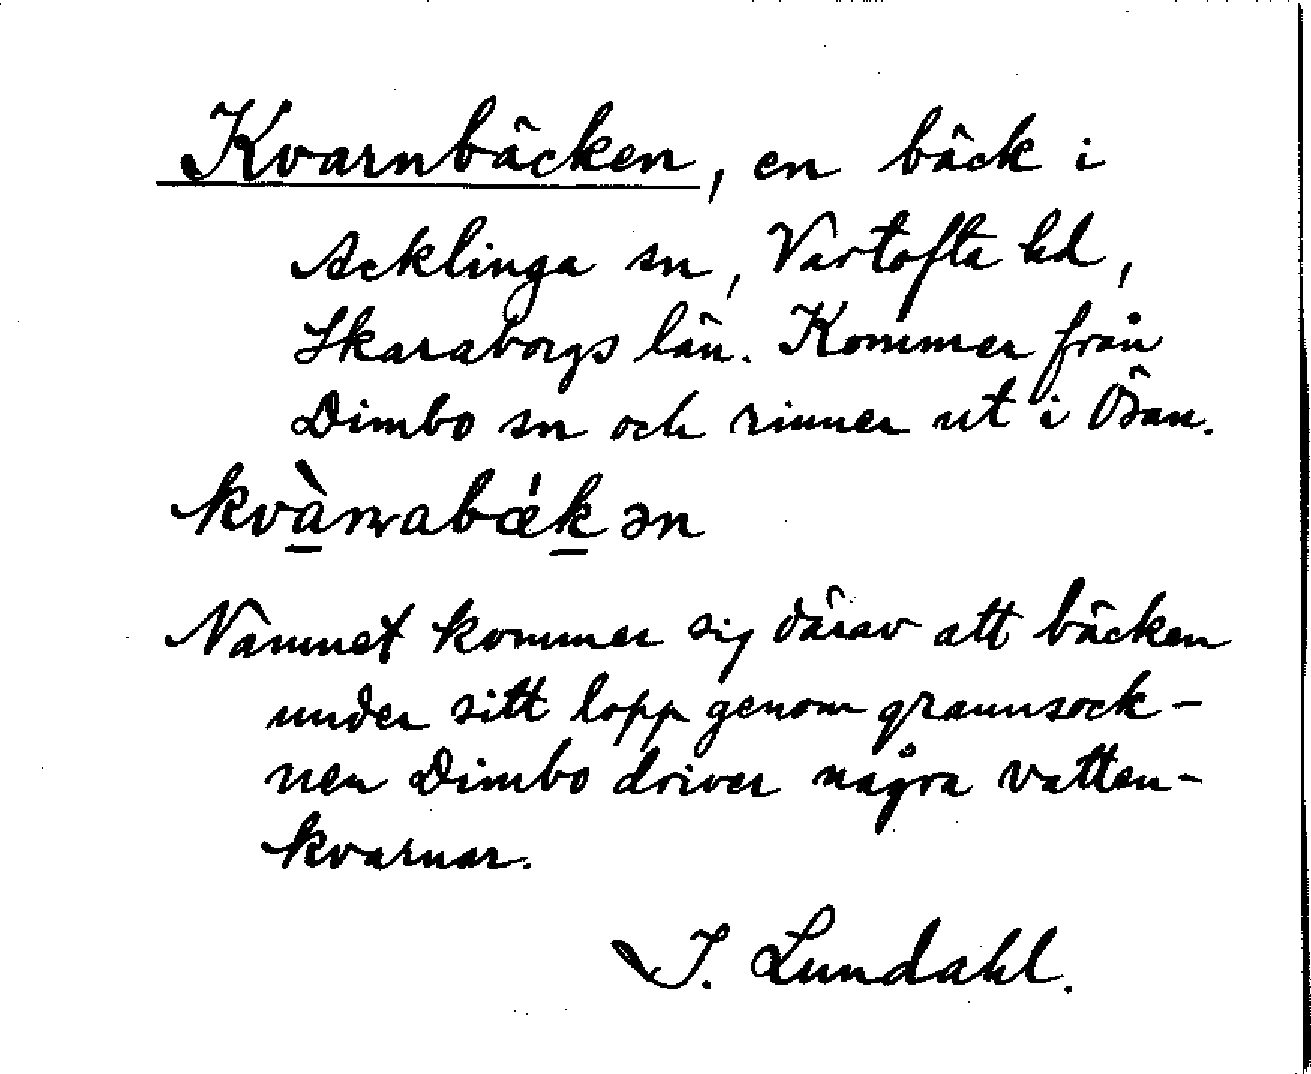 Kvarnbäcken, en bäck i
Acklinga sn, Vartofta hd,
Skaraborgs län. Kommer från
Dimbo sn och rinner ut i Ösan.
kvàrnabǽkən
Namnet kommer sig därav att bäcken
under sitt lopp genom grannsock-
nen Dimbo driver några vatten-
kvarnar.
J. Lundahl.